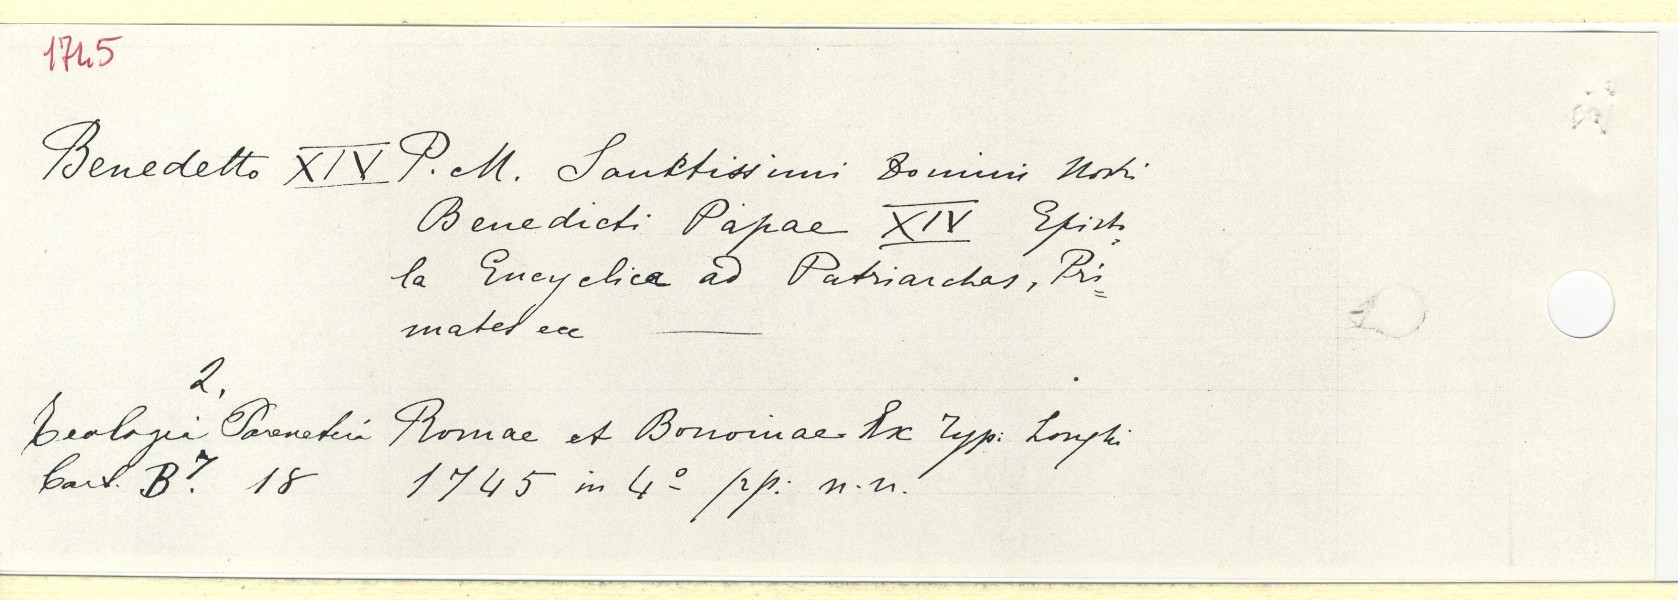 1745
Benedetto XIV P. M. Sanktissimi Domini Nostri
Benedicti Papae XIV Episto=
la Encyclica ad Patriarchas, Pri=
mates ecc
2.
Teologia Parenetica Romae et Bononiae Ex Typ: Longhi
Cart. B7. 18 1745 in 4º pp: n.n.